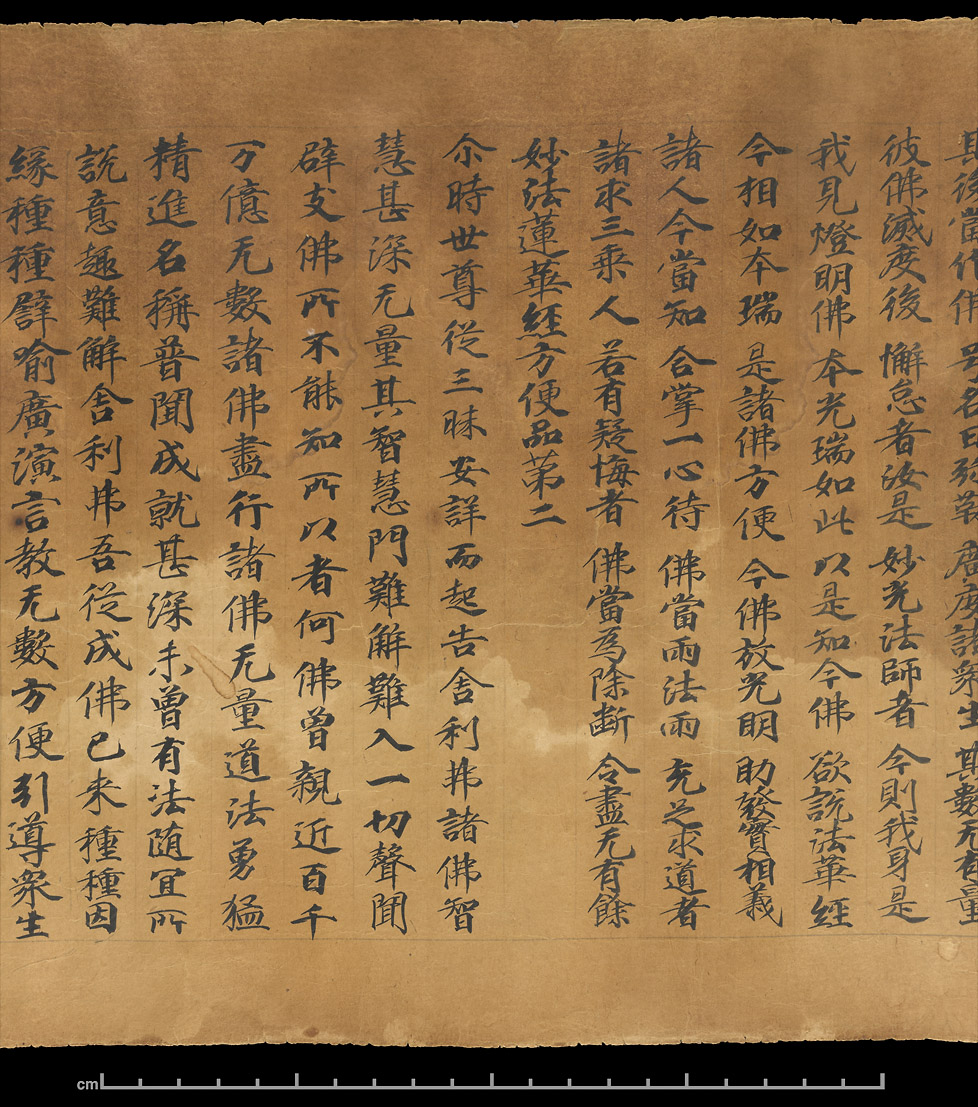 其後當作佛 号名曰弥勒 廣度諸衆生 其數无有量
彼佛滅度後 懈怠者汝是 妙光法師者 今則我身是
我見燈明佛 本光瑞如此 以是知今佛 欲說法華經
今相如本瑞 是諸佛方便 今佛放光明 助發實相義
諸人今當知 合掌一心待 佛當雨法雨 充足求道者
諸求三乗人 若有疑悔者 佛當為除斷 令盡无有餘
妙法蓮華經方便品第二
尒時世尊從三昧安詳而起告舍利弗諸佛智
慧甚深无量其智慧門難解難入一切聲聞
辟支佛所不能知所以者何佛曾親近百千
万億无數諸佛盡行諸佛无量道法勇猛
精進名稱普聞成就甚深未曾有法随冝所
說意趣難解舍利弗吾從成佛已来種種因
緣種種譬喻廣演言教无數方便引導衆生
cm